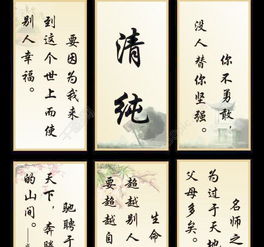 要因为我来
到这个世上而使
别人幸福。
清纯
你不勇敢，
没人替你坚强。
驰聘于
天下，奔腾
的山间。
生命
超越别人
要超越自
名师之
为过于天地
父母多矣。